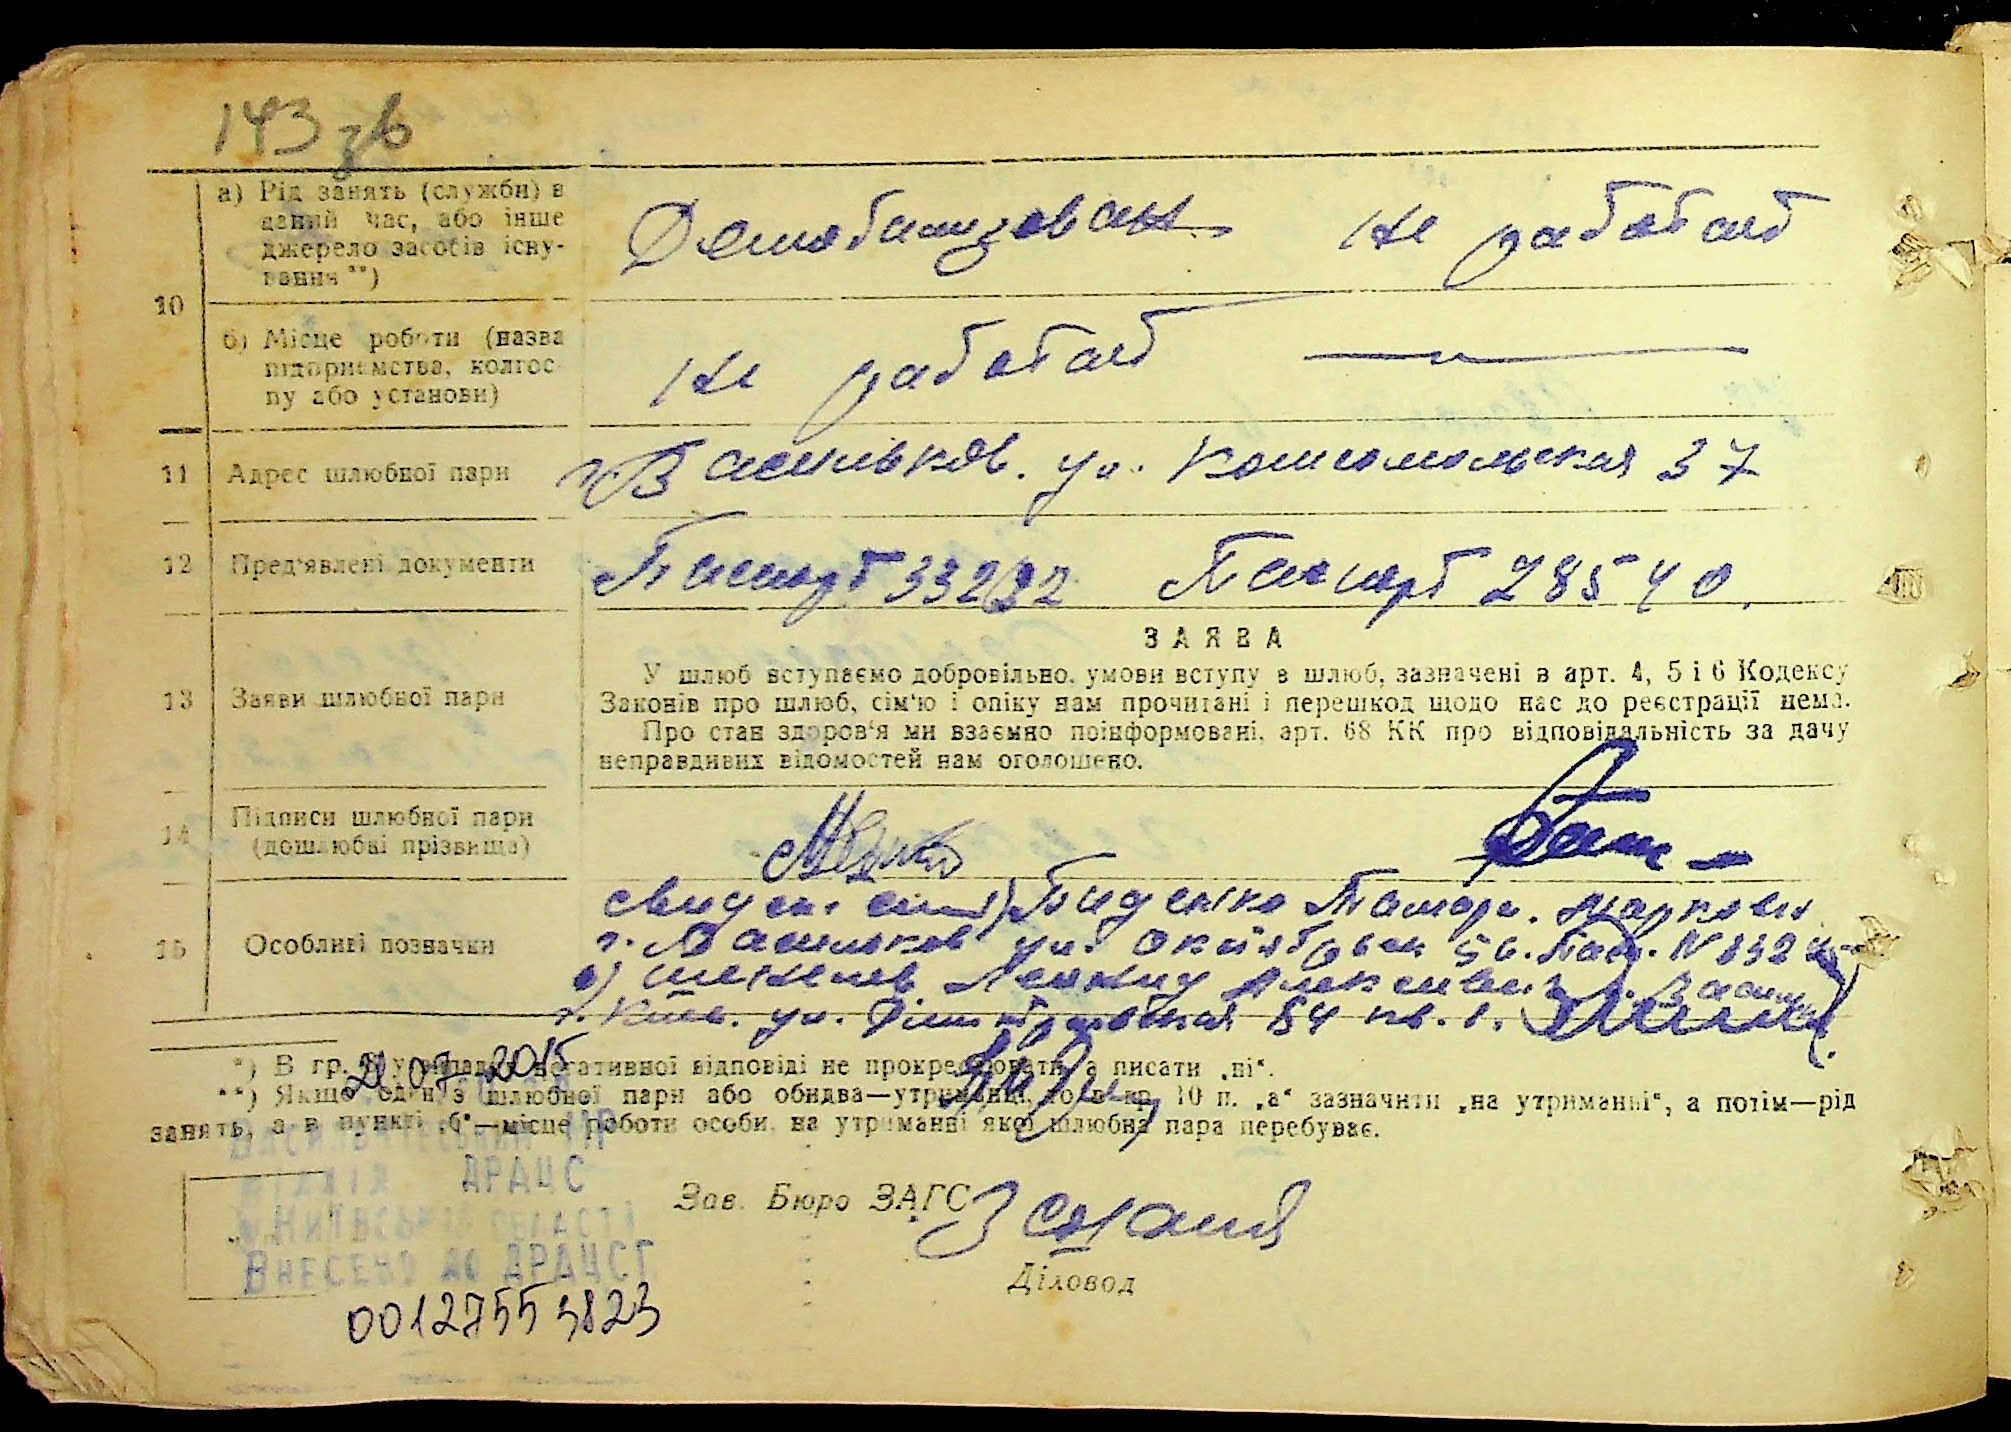 143 зв
а) Рід занять (служби) в
даний час, або інше
джерело засобів існу-
вання **)
Демобилизован не работает
10
б) Місце роботи (назва
підприємства, колгос-
пу або установи)
не работает
11 Адрес шлюбної пари г Васильков. ул. Комсомольская 37
12 Пред'явлені документи Паспорт Паспорт 28540.
ЗАЯВА
13 Заяви шлюбної пари
У шлюб вступаємо добровільно. умови вступу в шлюб, зазначені в арт. 4, 5 і 6 Кодексу
Законів про шлюб, сім'ю і опіку нам прочитані і перешкод щодо нас до реєстрації нема.
Про стан здоров'я ми взаємно поінформовані, арт. 68 КК про відповідальність за дачу
неправдивих відомостей нам оголошено.
14 Підписи шлюбної пари
(дошлюбні прізвища)
15 Особливі позначки
Тамара Марковн
г. Васильков ул. Октябрьск 56. Пасп. №
Леонид
г. Киев. ул. 84 кв. 1.
*) В гр. у випадку негативної відповіді не прокреслювати, а писати „ні“.
21 07 2015
**) Якщо один з шлюбної пари або обидва—утриманці, то в гр. 10 п. „а“ зазначити „на утриманні“, а потім—рід
занять, а в пункті „б“—місце роботи особи, на утриманні якої шлюбна пара перебуває.
ДРАЦС
Зав. Бюро ЗАГС
Київської області
Внесено до ДРАЦСГ
Діловод
00127553823